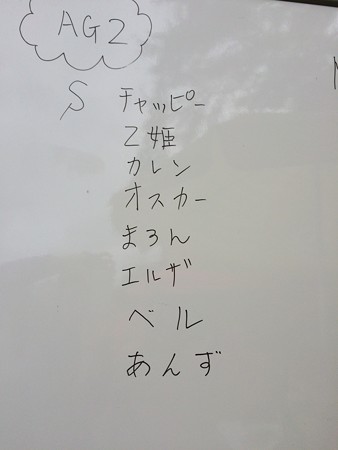 AG2
S チャッピー
乙姫
カレン
オスカー
まろん
エルザ
ベル
あんず